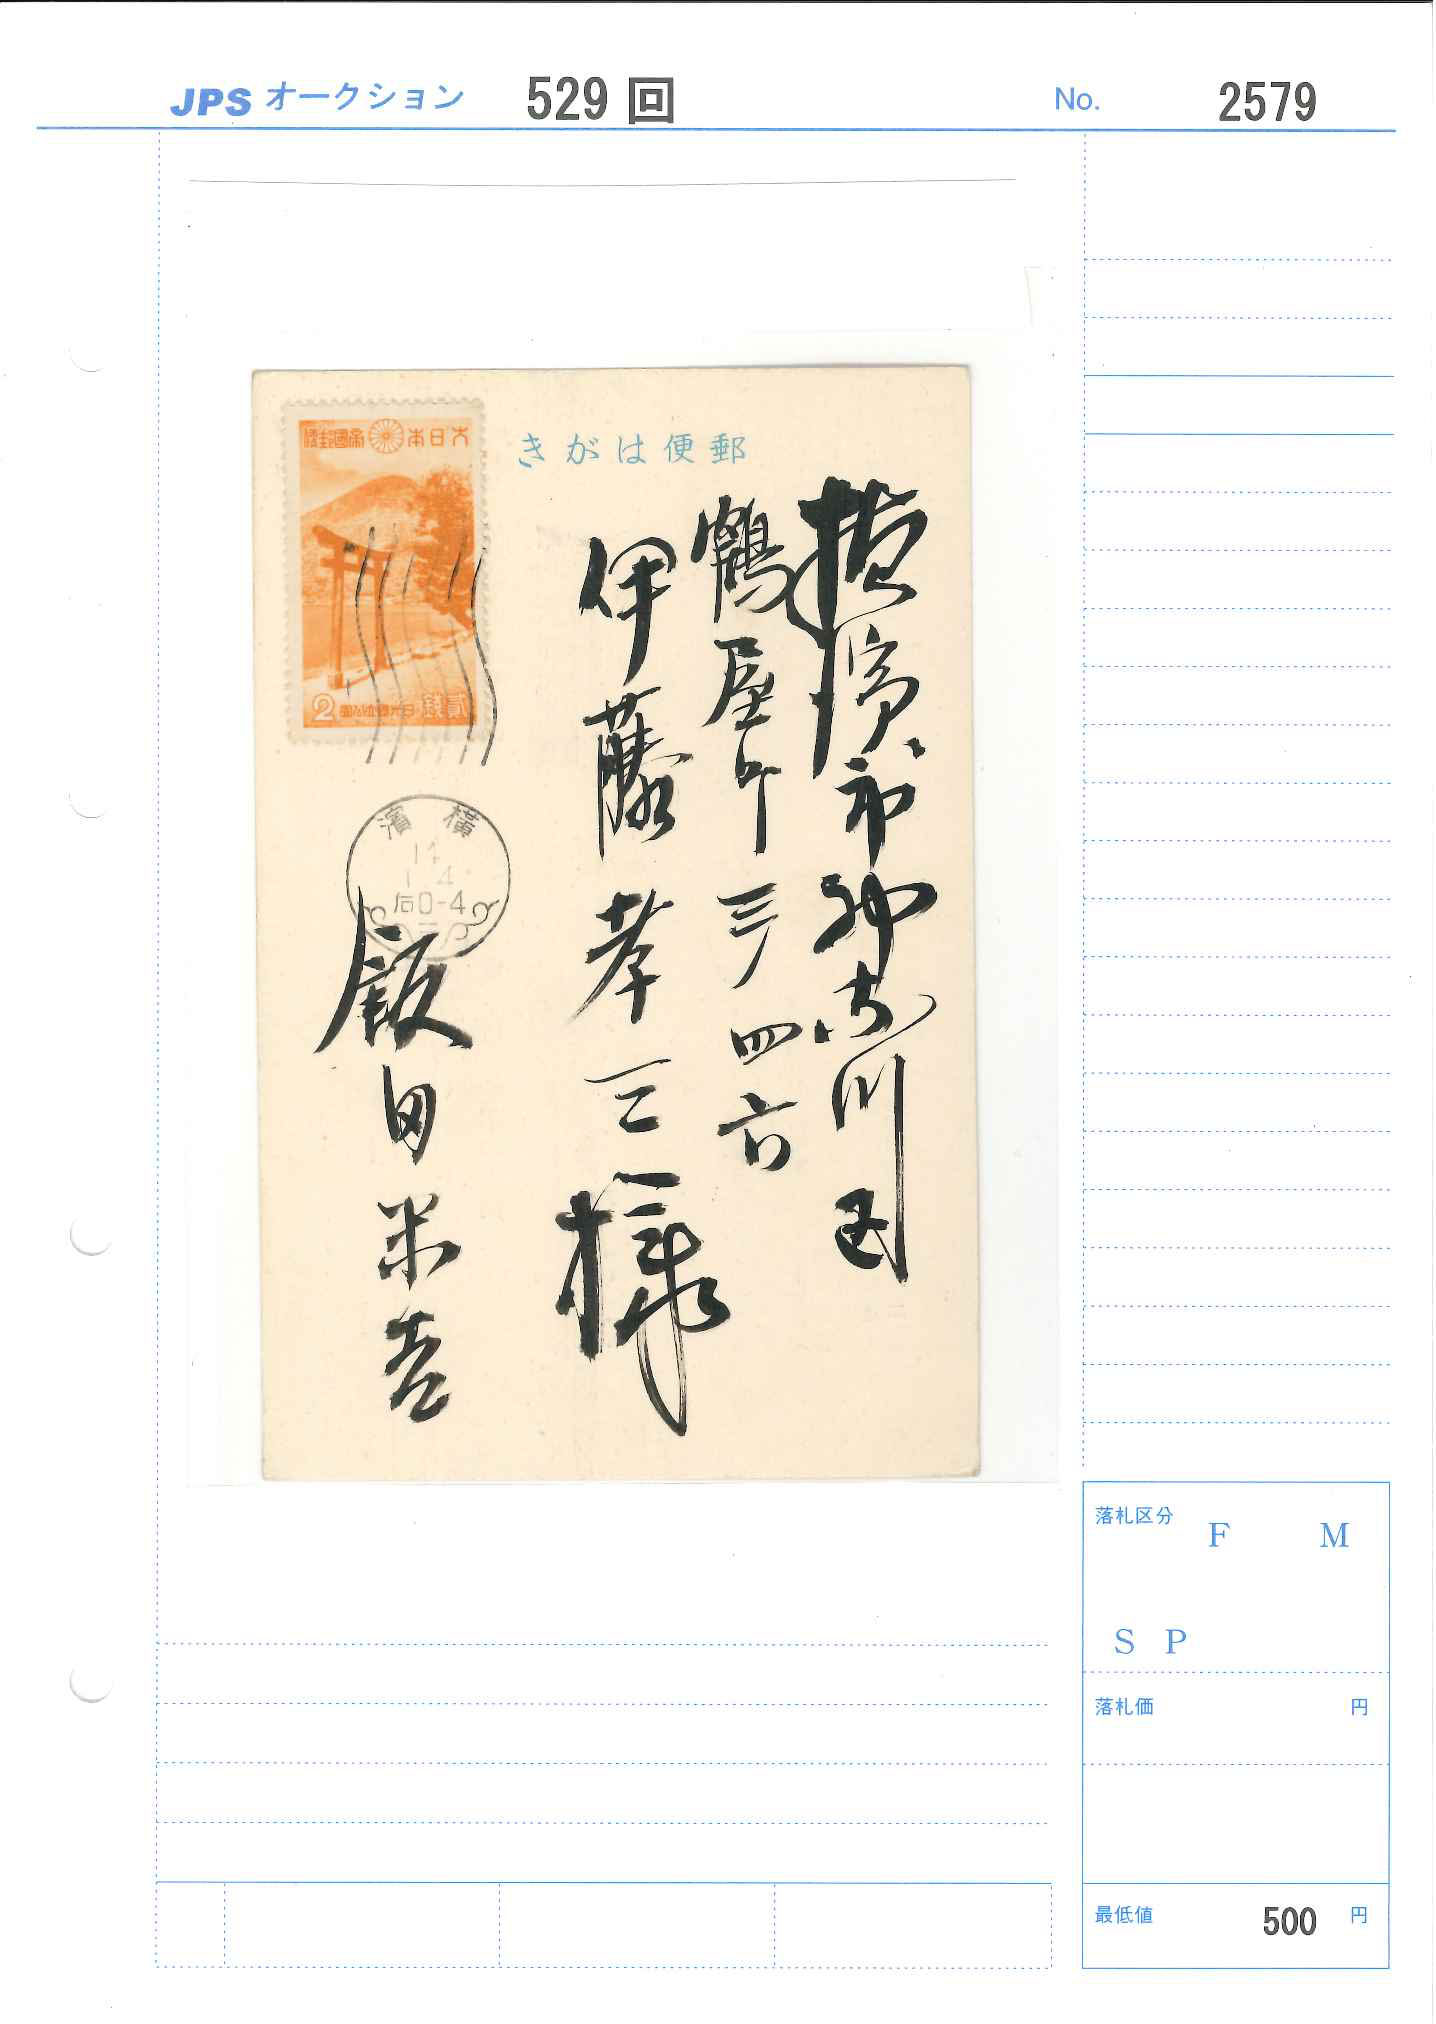 JPS オークション 529 回 No. 2579
きがは便郵
大日本帝國郵便
2 日光國立公園 貳錢
横濱市神奈川区
鶴屋町三ノ四六
伊藤孝三様
横濱
14
1.4
后0-4
飯田米吉
落札区分 F M
S P
落札価 円
最低値 500 円